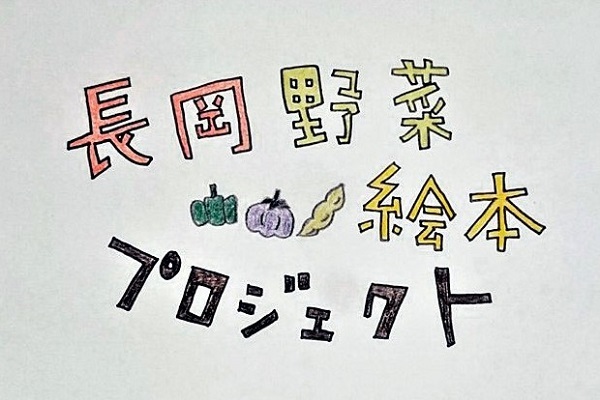 長岡野菜
絵本
プロジェクト